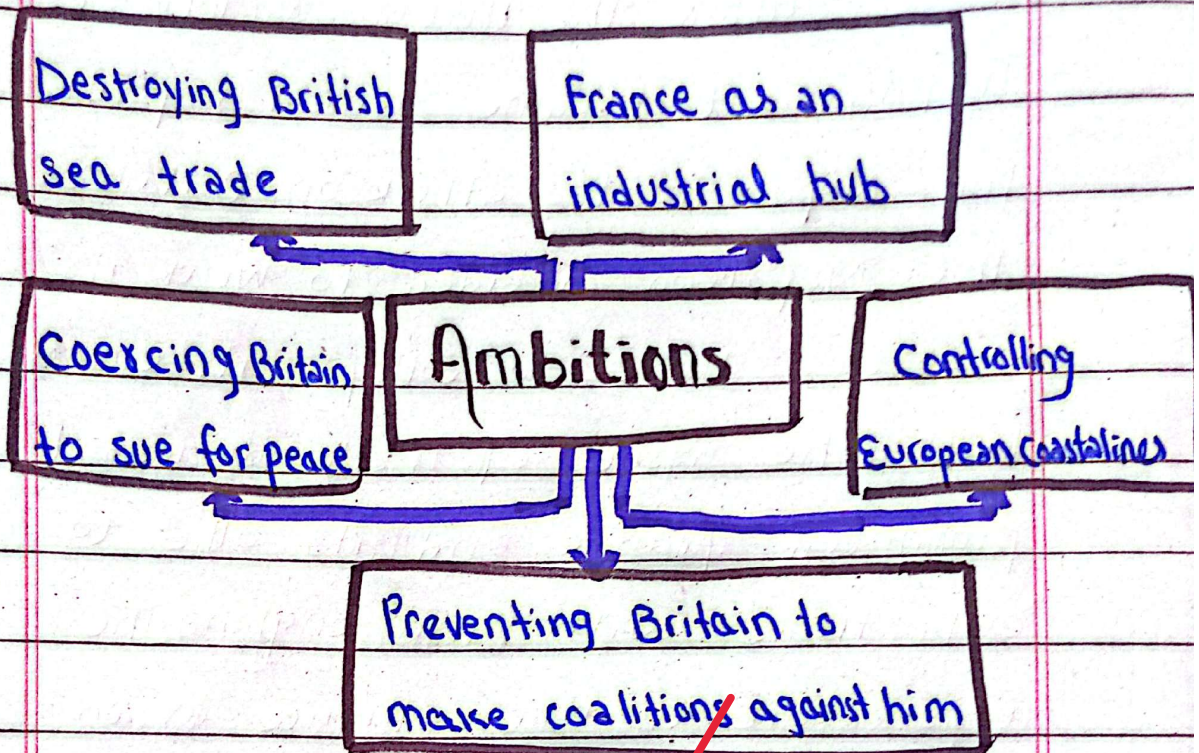 Destroying British
sea trade
France as an
industrial hub
Coercing Britain
to sue for peace
Ambitions
Controlling
European Coastalines
Preventing Britain to
make coalitions against him